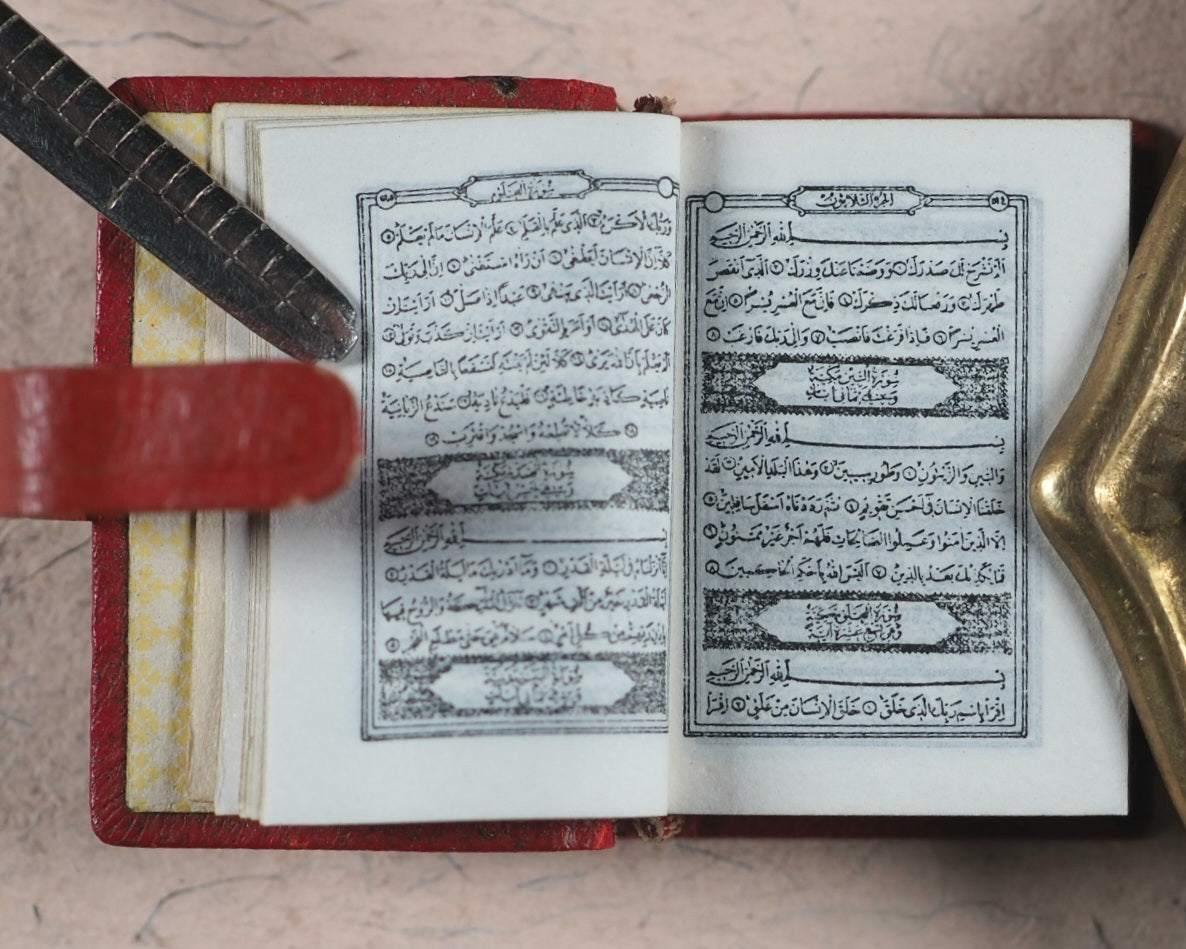 الجزء الثلاثون
بسم الله الرحمن الرحيم
الم نشرح لك صدرك ١ ووضعنا عنك وزرك ٢ الذي انقض
ظهرك ٣ ورفعنا لك ذكرك ٤ فان مع العسر يسرا ٥ ان مع
العسر يسرا ٦ فاذا فرغت فانصب ٧ والى ربك فارغب ٨
سورة التين مكية
وهي ثمان ايات
بسم الله الرحمن الرحيم
والتين والزيتون ١ وطور سينين ٢ وهذا البلد الامين ٣ لقد
خلقنا الانسان في احسن تقويم ٤ ثم رددناه اسفل سافلين ٥
الا الذين امنوا وعملوا الصالحات فلهم اجر غير ممنون ٦
فما يكذبك بعد بالدين ٧ اليس الله باحكم الحاكمين ٨
سورة العلق مكية
وهي تسع عشرة اية
بسم الله الرحمن الرحيم
اقرا باسم ربك الذي خلق ١ خلق الانسان من علق ٢ اقرا
سورة العلق
وربك الاكرم ٣ الذي علم بالقلم ٤ علم الانسان ما لم يعلم ٥
كلا ان الانسان ليطغى ٦ ان راه استغنى ٧ ان الى ربك
الرجعى ٨ ارايت الذي ينهى ٩ عبدا اذا صلى ١٠ ارايت ان
كان على الهدى ١١ او امر بالتقوى ١٢ ارايت ان كذب وتولى ١٣
الم يعلم بان الله يرى ١٤ كلا لئن لم ينته لنسفعا بالناصية ١٥
ناصية كاذبة خاطئة ١٦ فليدع ناديه ١٧ سندع الزبانية
١٨ كلا لا تطعه واسجد واقترب ١٩
سورة القدر مكية
وهي خمس ايات
بسم الله الرحمن الرحيم
انا انزلناه في ليلة القدر ١ وما ادريك ما ليلة القدر ٢
ليلة القدر خير من الف شهر ٣ تنزل الملئكة والروح فيها
باذن ربهم من كل امر ٤ سلام هي حتى مطلع الفجر ٥